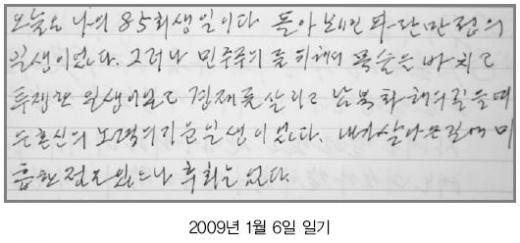 오늘은 나의 85회 생일이다. 돌아보면 파란만장의
일생이었다. 그러나 민주주의를 위해 목숨을 바치고
투쟁한 일생이었고 경제를 살리고 남북화해의 길을 여는
데 혼신의 노력을 기울인 일생이었다. 내가 살아온 길에 미
흡한 점은 있으나 후회는 없다.
2009년 1월 6일 일기